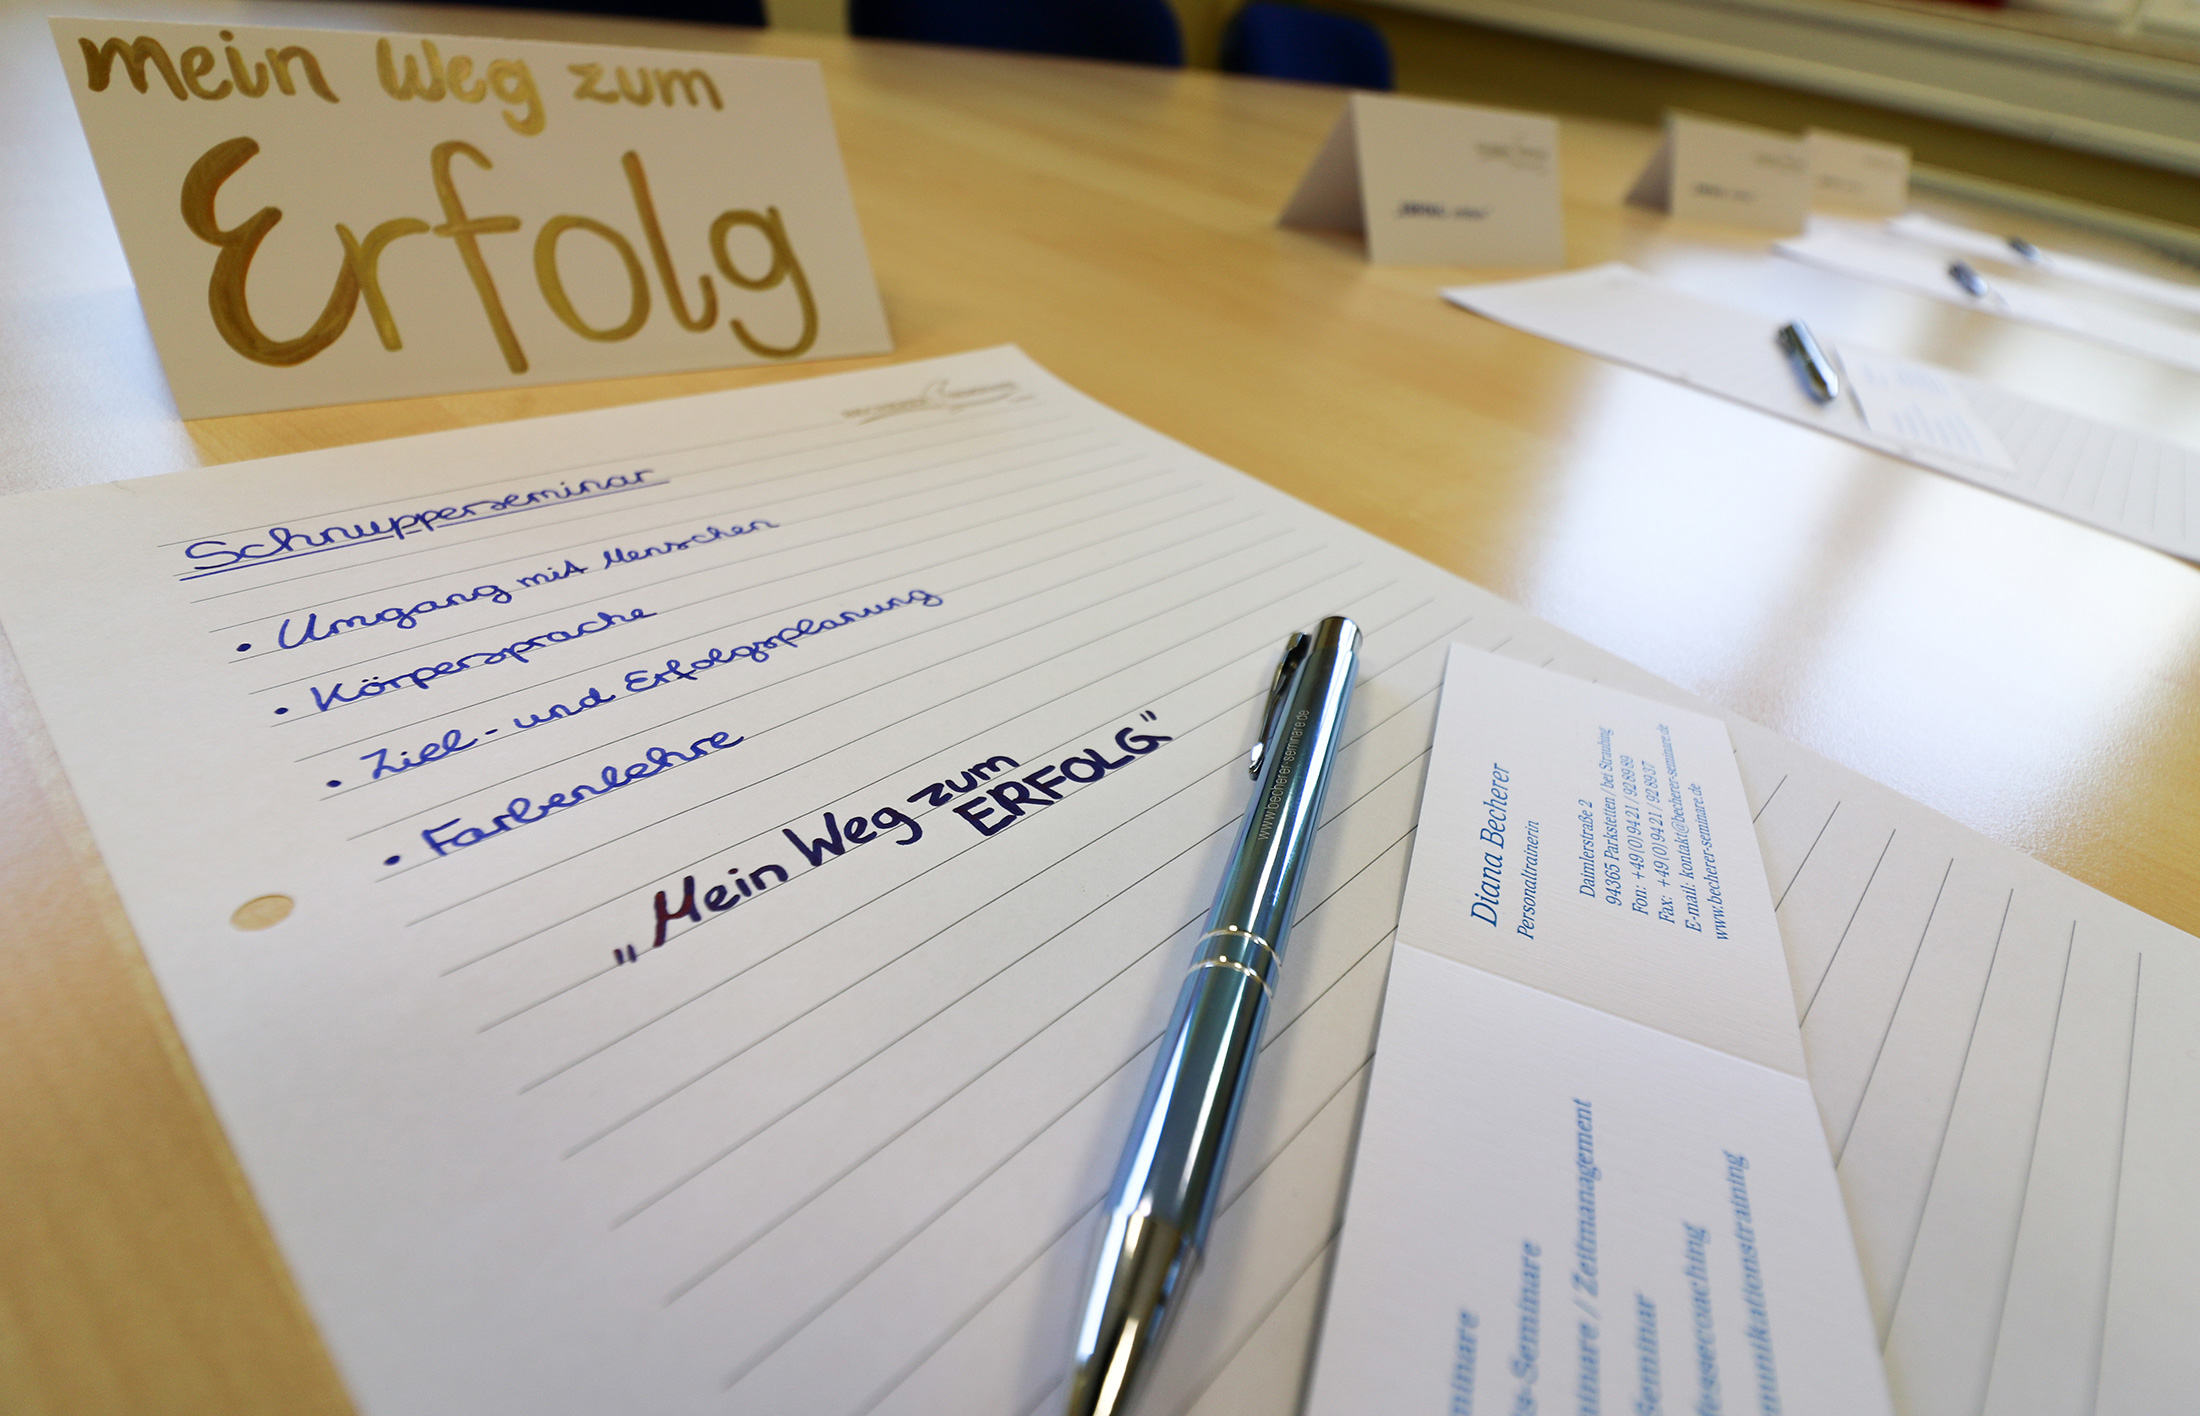 mein Weg zum
Erfolg
Schnupperseminar
• Umgang mit Menschen
• Körpersprache
• Ziel- und Erfolgsplanung
• Farbenlehre
„Mein Weg zum
ERFOLG"
www.becherer-seminare.de
Diana Becherer
Personaltrainerin
Daimlerstraße 2
94365 Parkstetten / bei Straubing
Fon: +49 (0) 94 21 / 92 89 89
Fax: +49 (0) 94 21 / 92 89 37
E-mail: kontakt@becherer-seminare.de
www.becherer-seminare.de
-Seminare
/ Zeitmanagement
Seminar